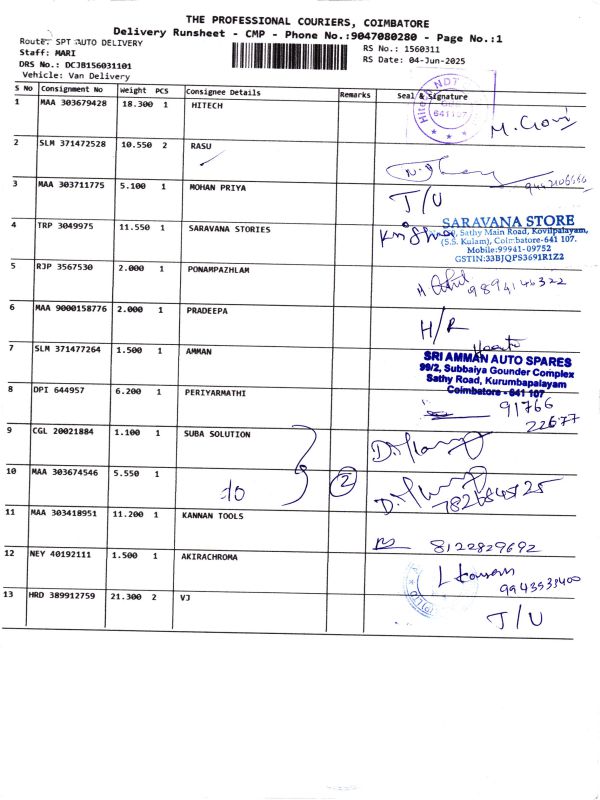 THE PROFESSIONAL COURIERS, COIMBATORE
Delivery Runsheet - CMP - Phone No.:9047080280 - Page No.:1
Route: SPT AUTO DELIVERY
RS No.: 1560311
Staff: MARI
RS Date: 04-Jun-2025
DRS No.: DCJB156031101
Vehicle: Van Delivery
S No Consignment No Weight PCS Consignee Details Remarks Seal & Signature
1 MAA 303679428 18.300 1 HITECH
641107
2 SLM 371472528 10.550 2 RASU
3 MAA 303711775 5.100 1 MOHAN PRIYA T/U
4 TRP 3049975 11.550 1 SARAVANA STORIES
SARAVANA STORE
Sathy Main Road, Kovilpalayam,
(S.S. Kulam), Coimbatore-641 107.
Mobile:99941-09752
GSTIN:33BJQPS3691R1Z2
5 RJP 3567530 2.000 1 PONAMPAZHLAM
9894146322
6 MAA 9000158776 2.000 1 PRADEEPA H/R
7 SLM 371477264 1.500 1 AMMAN
SRI AMMAN AUTO SPARES
99/2, Subbaiya Gounder Complex
Sathy Road, Kurumbapalayam
Coimbatore - 641 107
8 DPI 644957 6.200 1 PERIYARMATHI
91766
22677
9 CGL 20021884 1.100 1 SUBA SOLUTION
10 MAA 303674546 5.550 1 2
11 MAA 303418951 11.200 1 KANNAN TOOLS
8122829692
12 NEY 40192111 1.500 1 AKIRACHROMA
13 HRD 389912759 21.300 2 VJ T/U